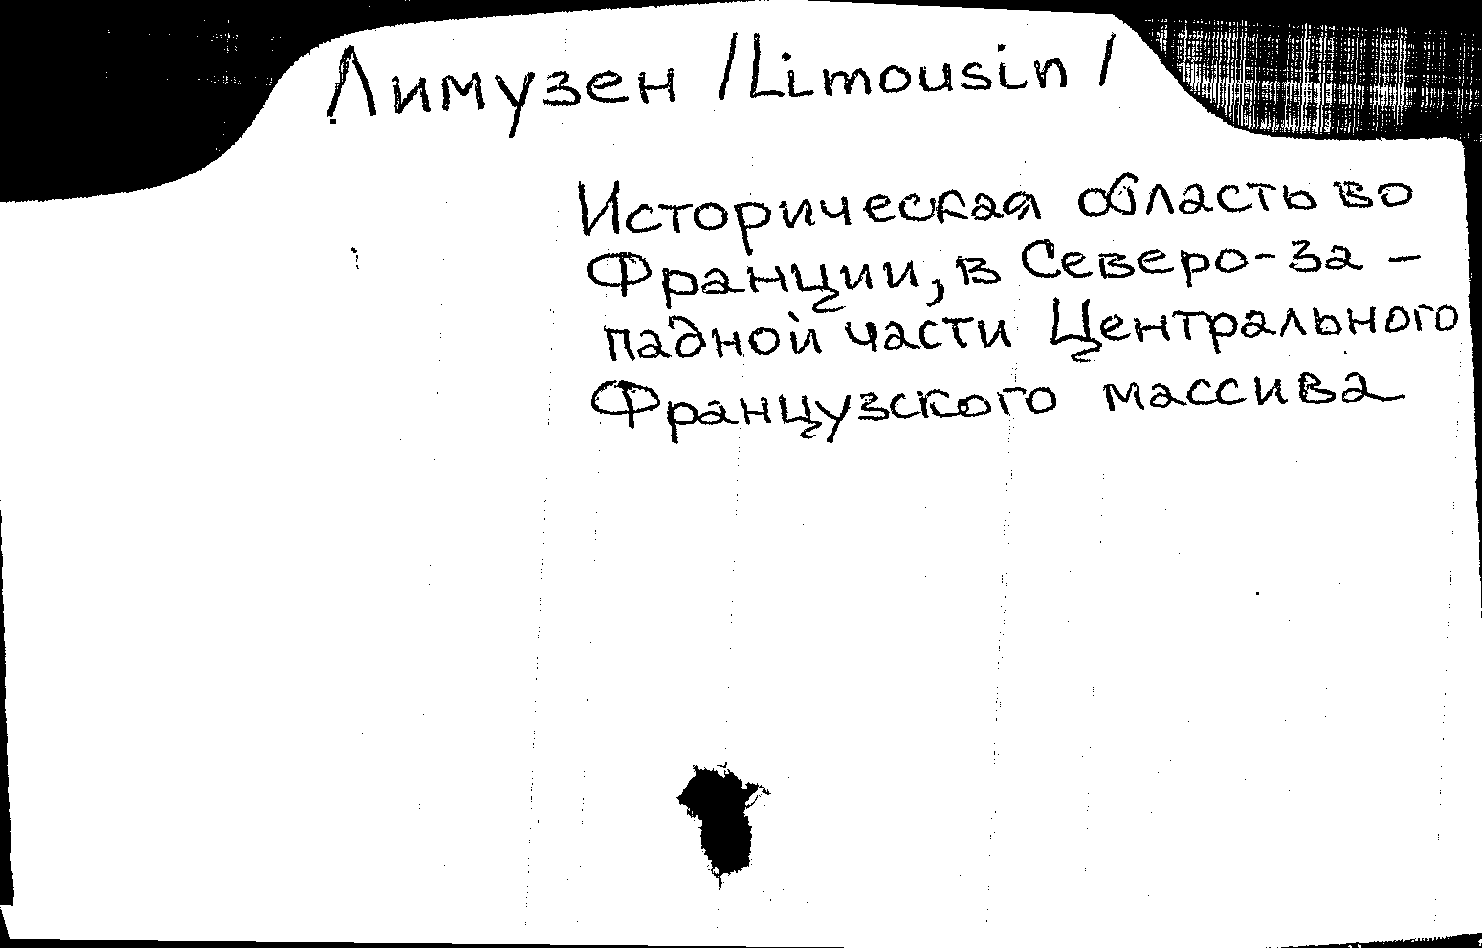 Лимузен /Limousin/
Историческая область во
Франции, в Северо-за-
падной части Центрального
Французского массива